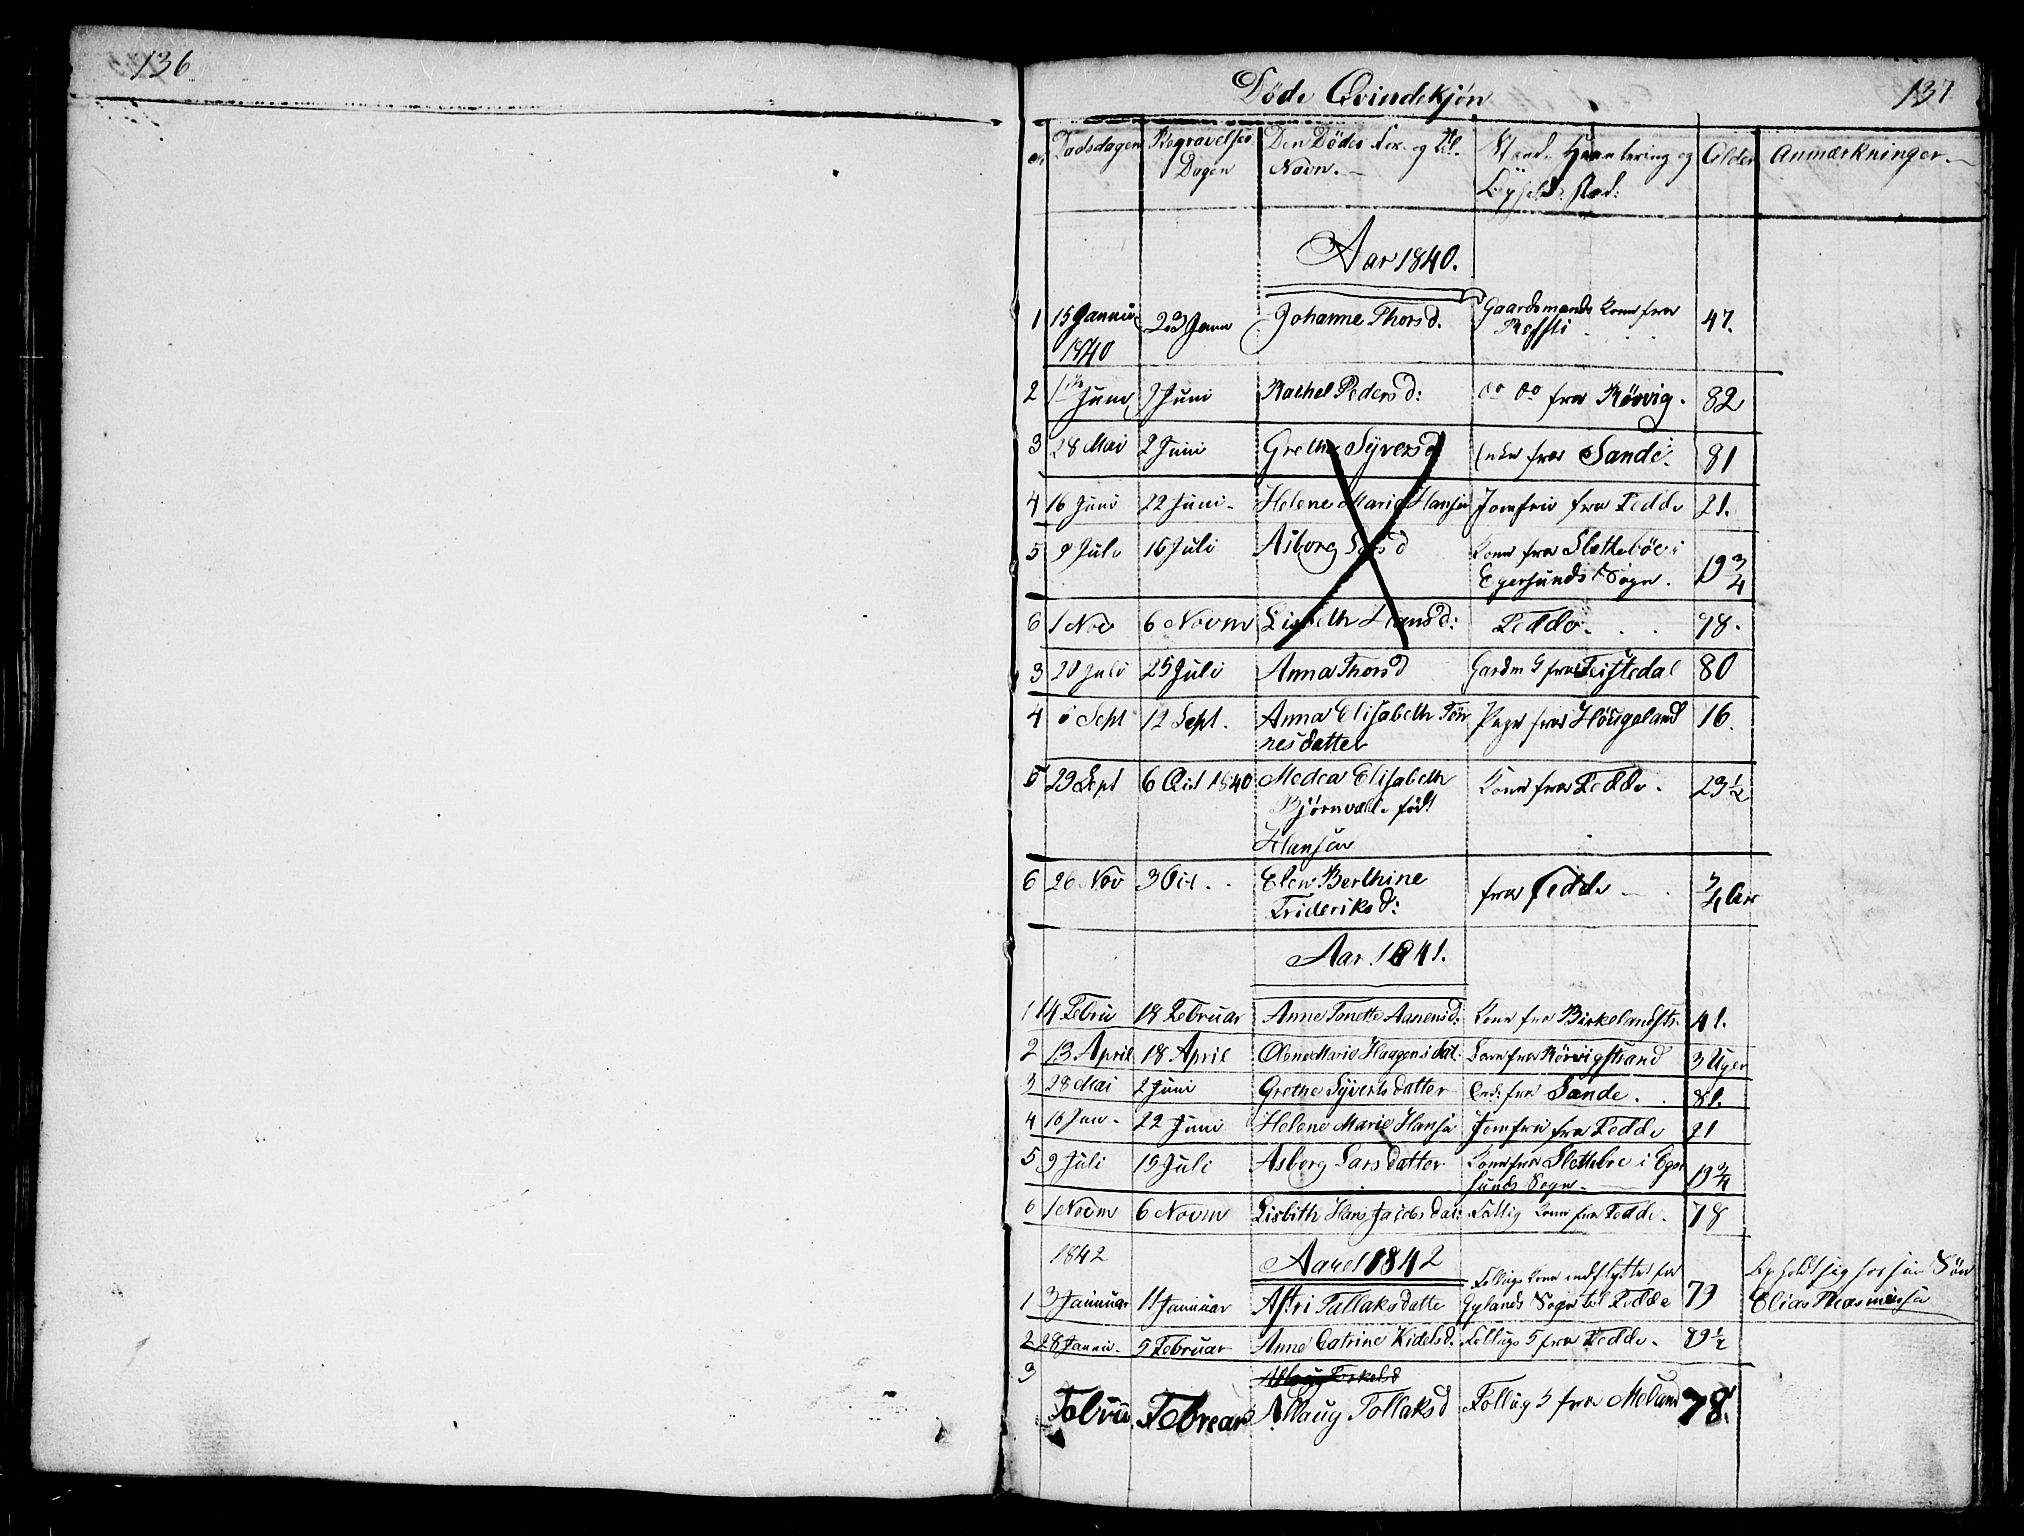 136
Døde Qvindekjøn
137
Dødsdagen Begravelses Dagen Den Dødes For- og Til- Navn. Stand, Haandtering og Opholds Sted: Alder Anmærkninger.
Aar 1840.
1 15 Januar 1840 23 Janu Johanne Thorsd. Gaardsmands Kone fra 47.
2 1 Juni 7 Juni Rachel Pedersd: do do fra Rørvig. 82
3 28 Mai 2 Juni Grethe Syversd Enke fra Sande. 81
4 16 Juni 22 Juni Helene Marie Hansen Jomfru fra Fedde 21.
5 9 Juli 16 Juli Asborg Larsd Kone fra Slettebøe i Egersunds Sogn. 19 3/4
6 1 Nov 6 Novm Lisbeth Hansd: Fedde. 78.
3 20 Juli 25 Juli Anna Thorsd Gardm fra Feistedal 80
4 Sept 12 Sept. Anna Elisabeth Tønnesdatter Pige fra Høugeland 16.
5 29 Sept 6 Oct 1840 Medea Elisabeth Bjørnvall født Hansen Kone fra Fedde. 23 1/2
6 26 Nov 3 Elen Berthine Frideriksd: fra Fedde 3/4 Aar
Aar 1841.
1 14 Febru 18 Februar Anne Tonette Aanensd: Kone fra Birkelandsts. 41.
2 13 April 18 April Olene Marie Haagensdat: Barn fra Rørvigstrand 3 Uger
3 28 Mai 2 Juni Grethe Syvertsdatter Enk: fra Sande. 81.
4 16 Jun. 22 Juni Helene Marie Hansen Jomfru fra Fedde 21
5 9 Juli 15 Juli Asborg Larsdatter Kone fra Slettebøe i Egersunds Sogn 19 3/4
6 1 Novm 6 Novm Lisbith Hans Jacobsdat: Fattig Kone fra Fedde. 78
1842 Aaret 1842
1 3 Januuar 11 Januuar Astri Tallaksdatte Kone indflyttet fra Gylands Sogn til Fedde 73 Opholdt sig hos sin Søn Elias
2 28 Januu. 5 Februar Anne Catrine Kidelsd. fra Fedde. 89 1/2
3 Febru. Februar Tollaksd fra Meland 78.